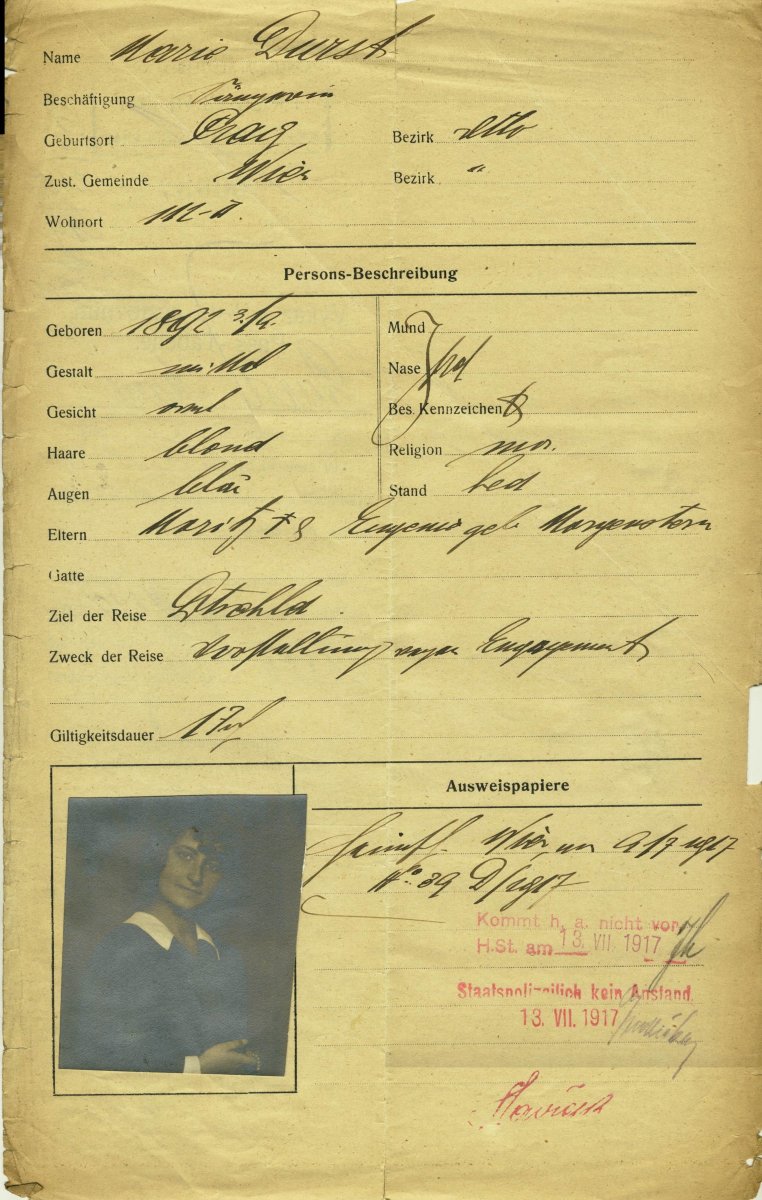 Name Marie Durst
Beschäftigung Sängerin
Geburtsort Prag Bezirk detto
Zust. Gemeinde Wien Bezirk "
Wohnort III-II.
Persons-Beschreibung
Geboren 1892 3./9. Mund
Gestalt mittel Nase
Gesicht oval Bes. Kennzeichen
Haare blond Religion mos.
Augen blau Stand led
Eltern Moritz † & Eugenie geb. Morgenstern
Gatte
Ziel der Reise Dtschld
Zweck der Reise Vorstellung wegen Engagement
Giltigkeitsdauer 1 J
Ausweispapiere
Heimsch. Wien, vom 9/7 1917
No 39 D/1917
Kommt h. a. nicht vor.
H.St. am 13. VII. 1917
Staatspolizeilich kein Anstand.
13. VII. 1917